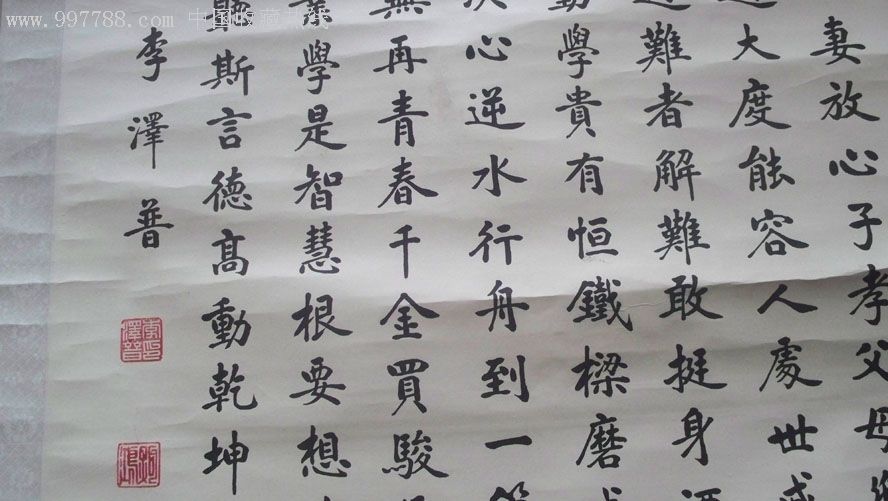 www.997788.com 中国收藏热线
妻放心子孝父母
大度能容人處世
難者解難敢挺身
學貴有恒鐵樑磨
心逆水行舟到一
無再青春千金買駿
學是智慧根要想
聽斯言德高動乾坤
李澤普